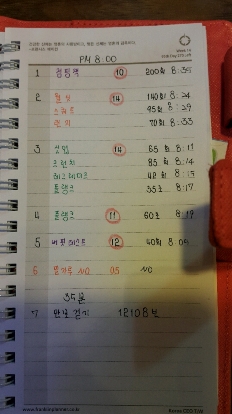 PM 8:00
1 점핑잭 10 200회 8:35
2 14 140회 8:24
스쿼트 95회 8:29
런지 70회 8:33
3 14 65회 8:11
크런치 85회 8:14
레그레이즈 42회 8:15
플랭크 35초 8:17
4 플랭크 11 60초 8:19
5 버핏테스트 12 40회 8:04
6 밀가루 NO 05 NO
35분
7 만보 걷기 12108보